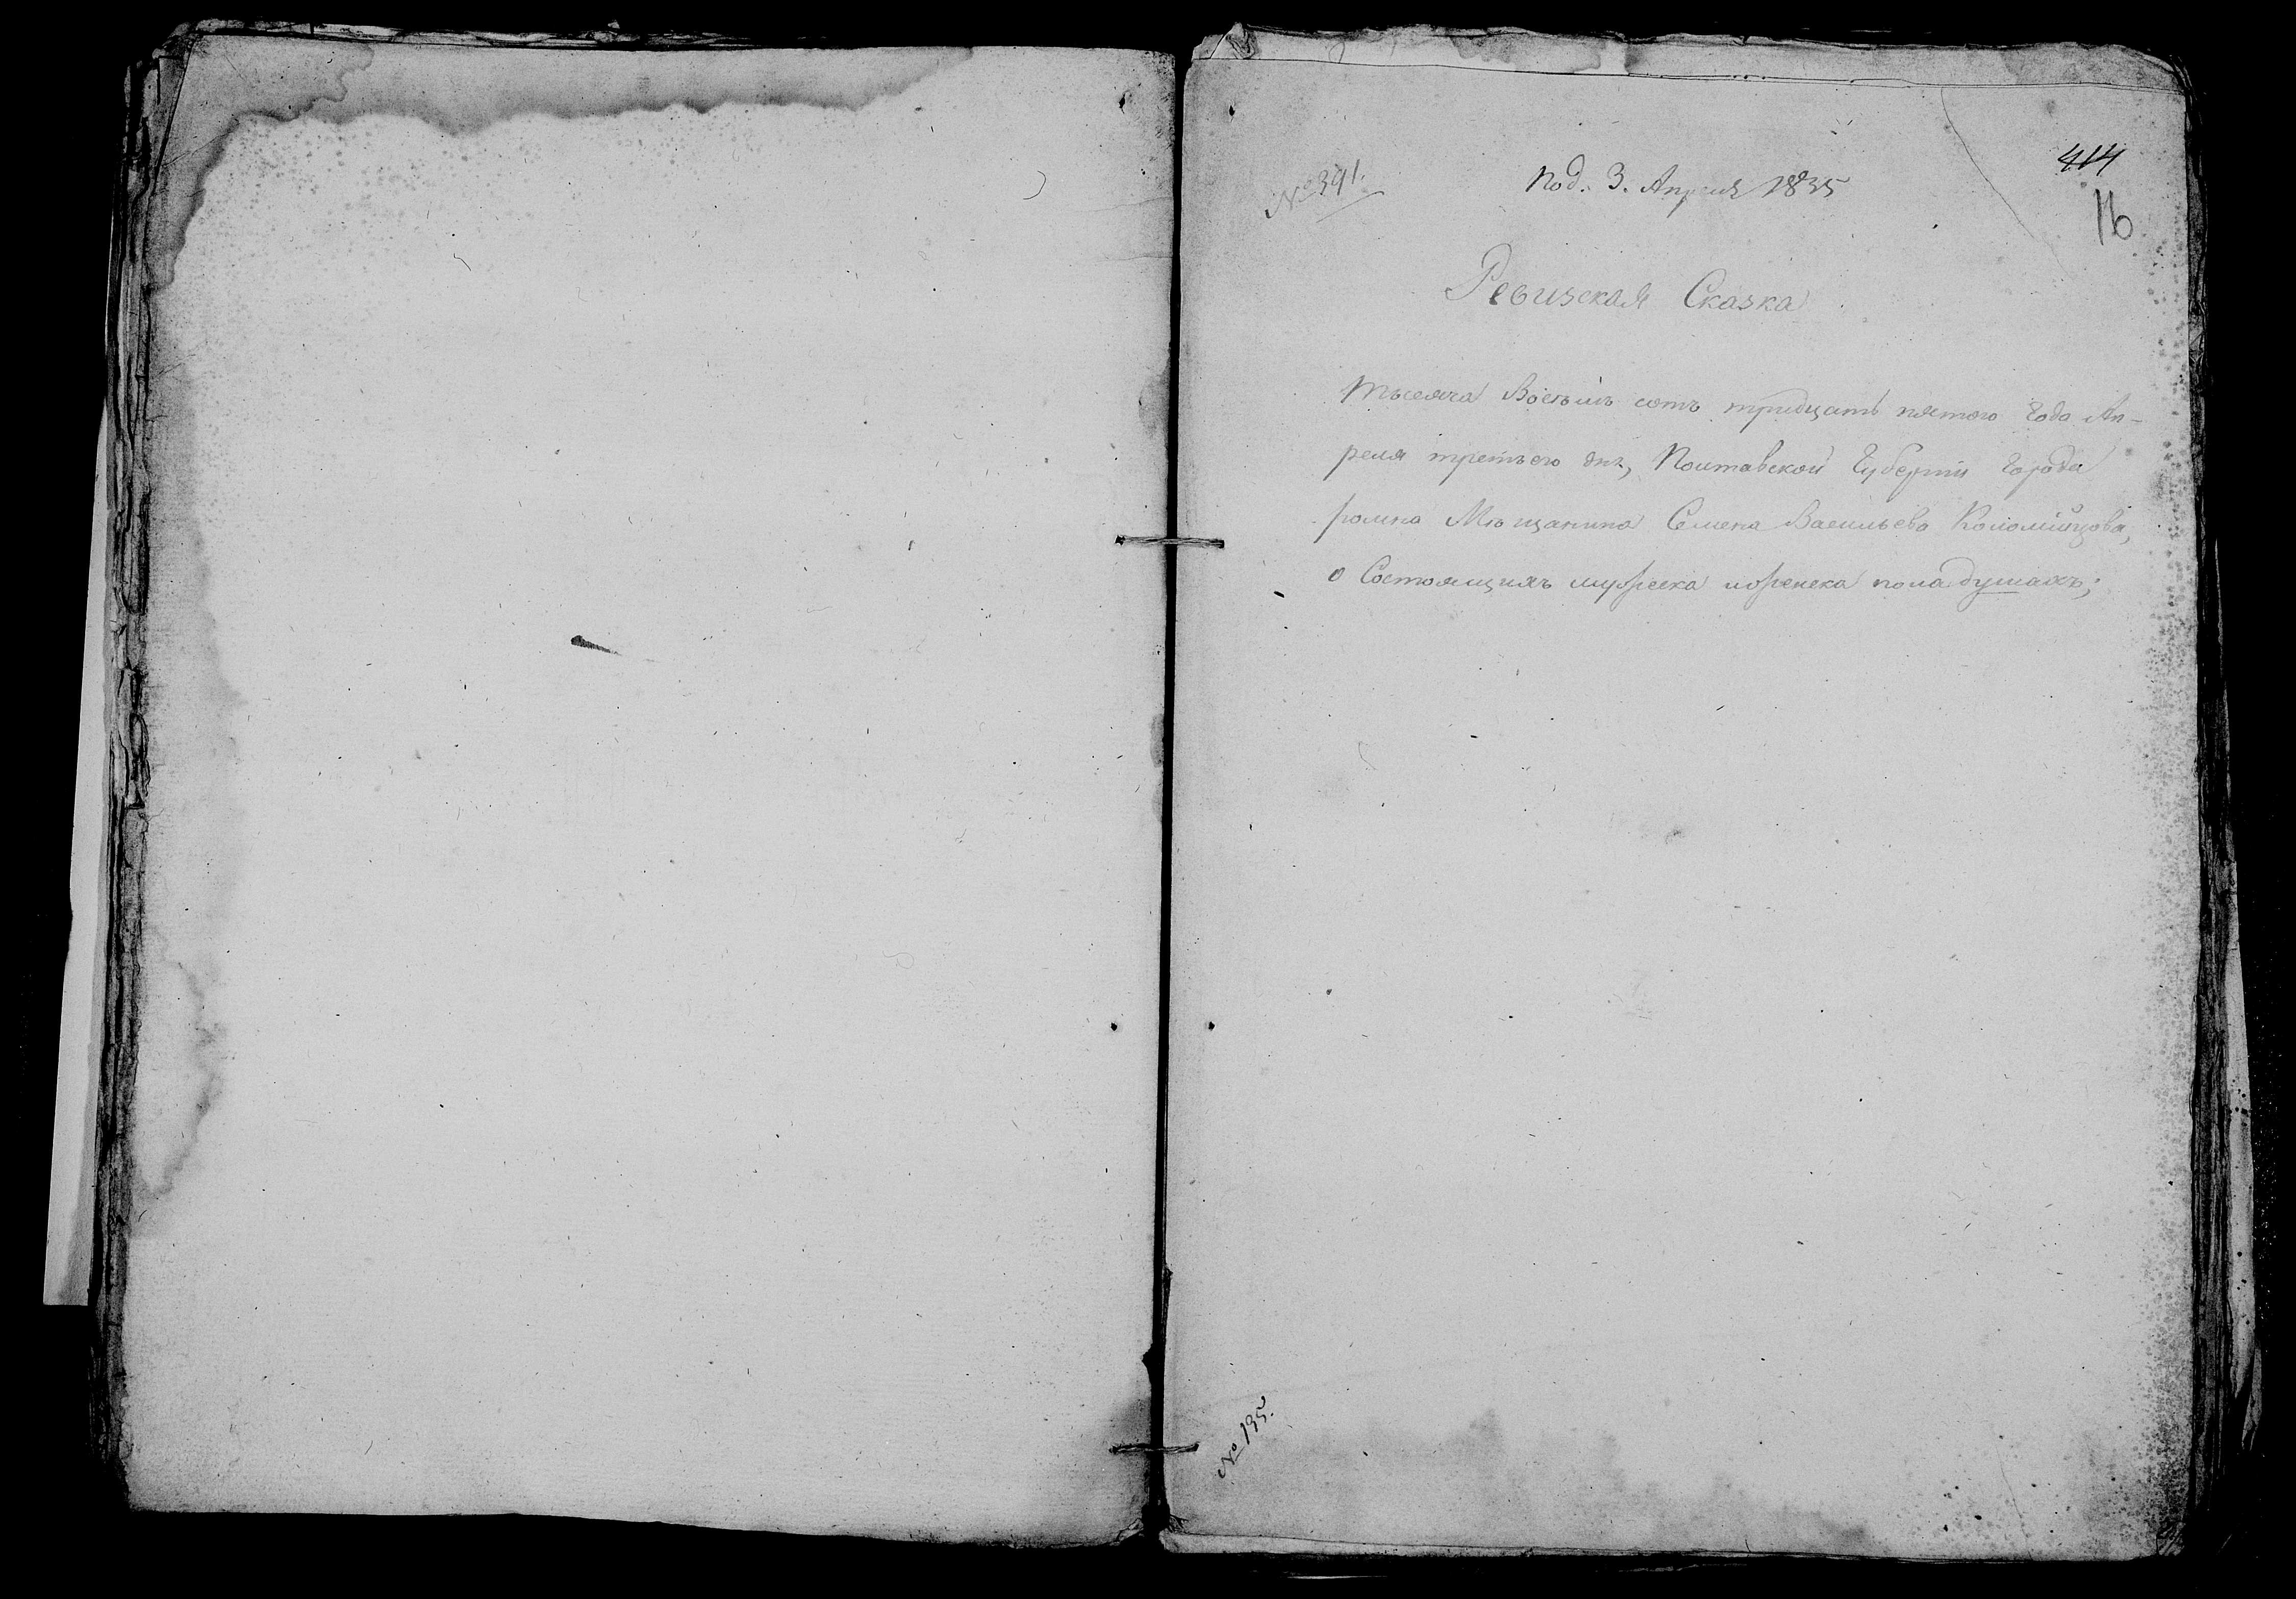 № 391.
Под. 3. Апреля 1835
414
16
Ревизская Сказка
Тысеяча Восемь сотъ тридцать пятого Года Ап-
реля третьего дня, Полтавской Губернии Города
ромна Мещанина Семена Васильева Коломійцова,
о Состоящихъ мужеска иженска пола душахъ;
№ 135.